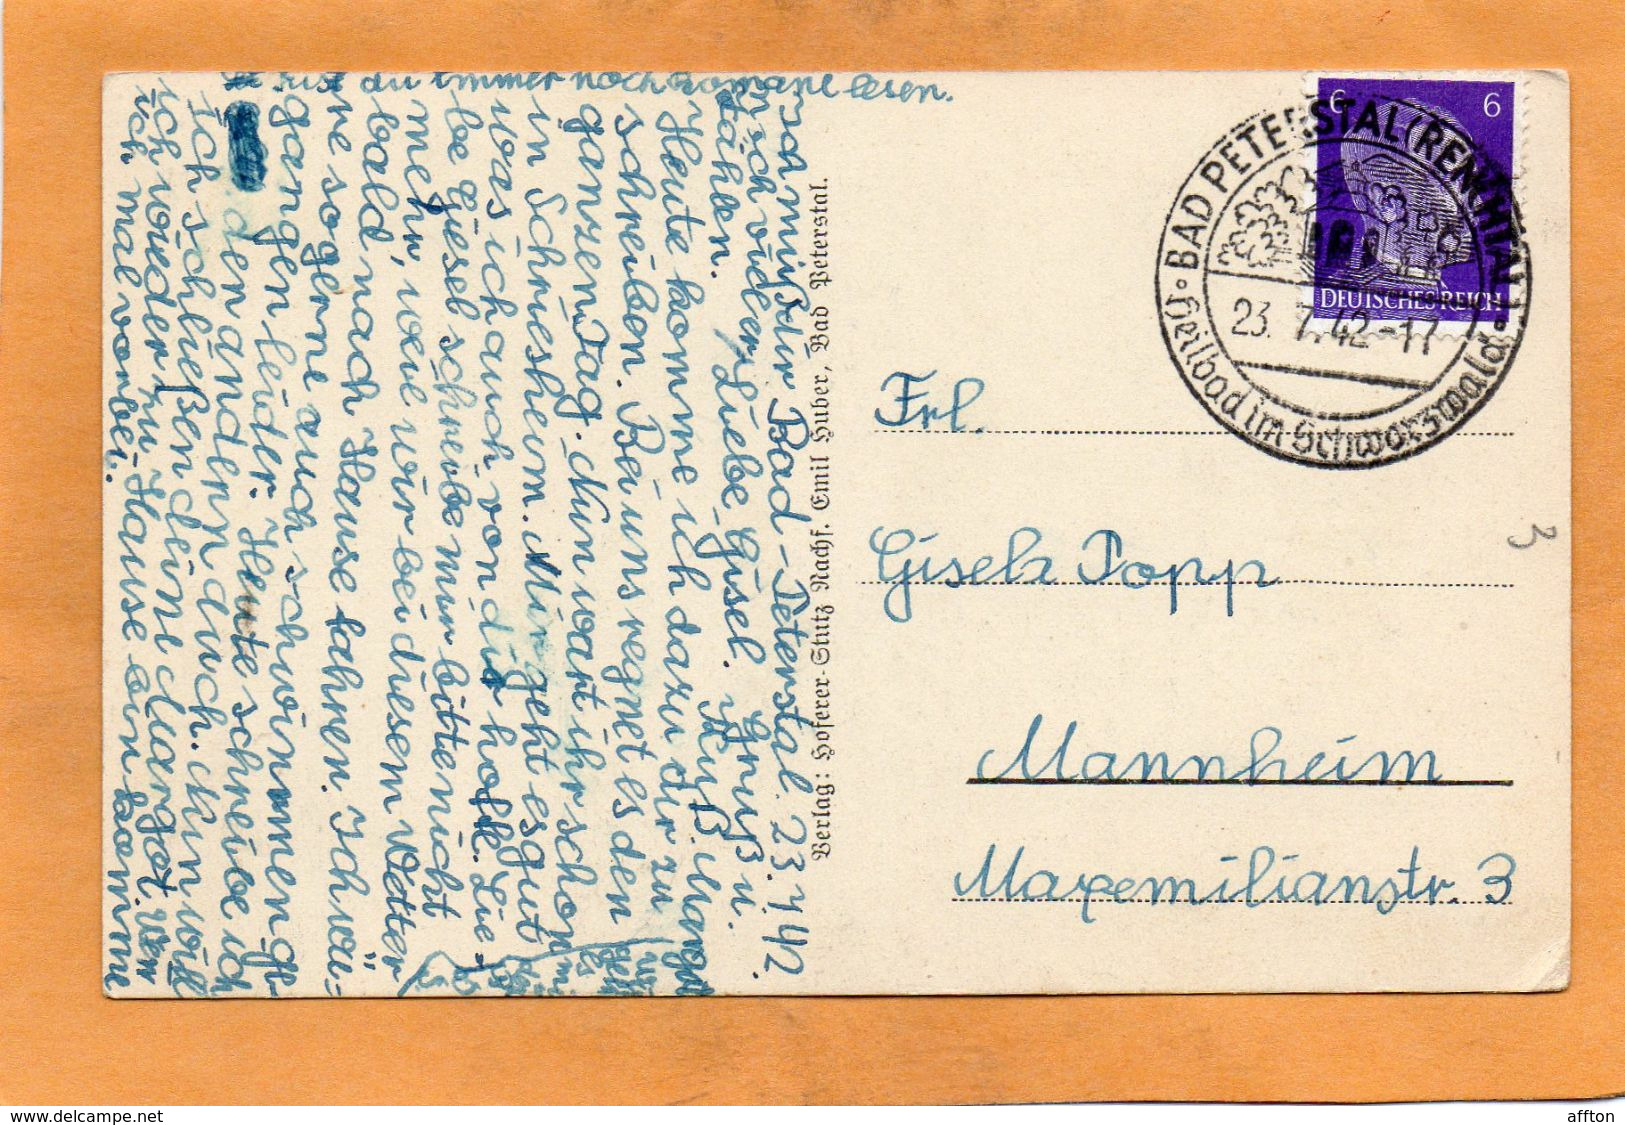 Bad-Peterstal. 23.7.42
Liebe Gisel. Gruß u.
Heute komme ich dazu dir zu
schreiben. Bei uns regnet es den
ganzen Tag. Nun wart ihr schon
in Schriesheim. Mir geht es gut
was ich auch von dir hoffe. Lie-
be Gisel schreibe mir bitte nicht
mehr, weil wir bei diesem Wetter
bald nach Hause fahren. Ich wä-
re so gerne auch schwimmen ge-
gangen leider. Heute schreibe ich
der andern durch. Nun will
ich schließen deine Margot. Wenn
ich wieder zu Hause bin komme
ich mal vorbei.
du immer noch Romane lesen.
Ich muß dir
Küß. Margot
Verlag: Hoferer-Stutz Nachf. Emil Huber, Bad Peterstal.
6 6
DEUTSCHES REICH
BAD PETERSTAL (RENCHTAL)
23. 7. 42 - 17
Heilbad im Schwarzwald
Frl.
Gisela Popp
Mannheim
Maxemilianstr. 3
3
www.delcampe.net
affton